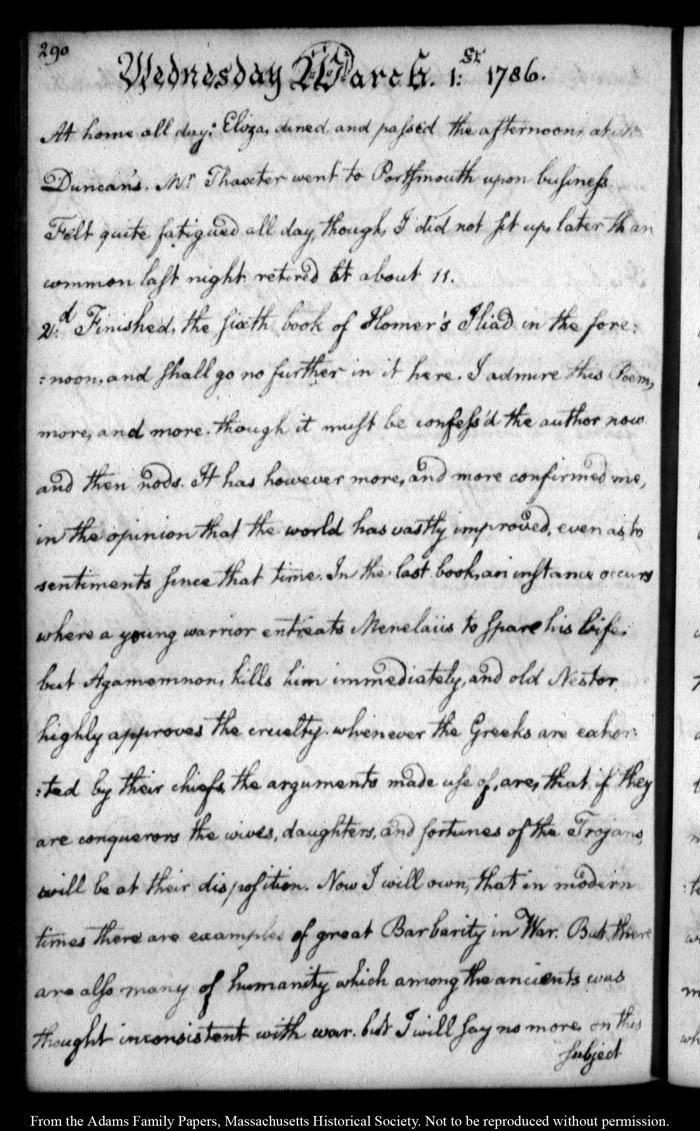 290
Wednesday March. 1:st 1786.
At home all day: Eliza, dined and pass'd the afternoon, at Mr
Duncan's. Mr Thaxter went to Portsmouth upon business
Felt quite fatigued all day, though, I did not sit up, later than
common last night retired at about 11.
2:d Finished, the sixth book of Homer's Iliad in the fore:
:noon, and shall go no further in it here. I admire this Poem,
more, and more. though it must be confess'd the author now
and then nods. It has however more, and more confirmed me,
in the opinion that the world has vastly improved, even as to
sentiments since that time. In the last book, an instance occurs
where a young warrior entreats Menelaüs to spare his life,
but Agamemnon, kills him immediately, and old Nestor
highly approves the cruelty. whenever the Greeks are exhor:
:ted by their chiefs, the arguments made use of, are, that if they
are conquerors the wives, daughters, and fortunes of the Trojans,
will be at their disposition. Now I will own, that in modern
times there are examples of great Barbarity in War. But there
are also many of humanity which among the ancients was
thought inconsistent with war. but I will say no more, on this
subject
From the Adams Family Papers, Massachusetts Historical Society. Not to be reproduced without permission.